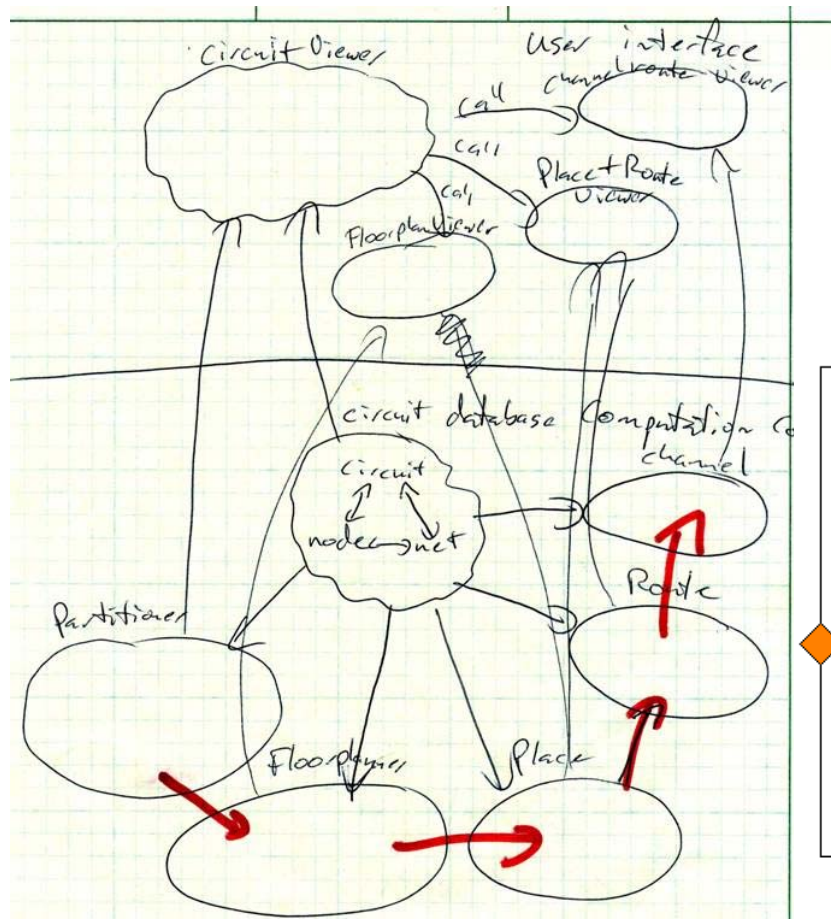 Circuit Viewer
User interface
channel route viewer
call
call
Place + Route
Viewer
call
Floorplan Viewer
circuit database
Computation Co
channel
circuit
node
net
Route
Partitioner
Floorplanner
Place